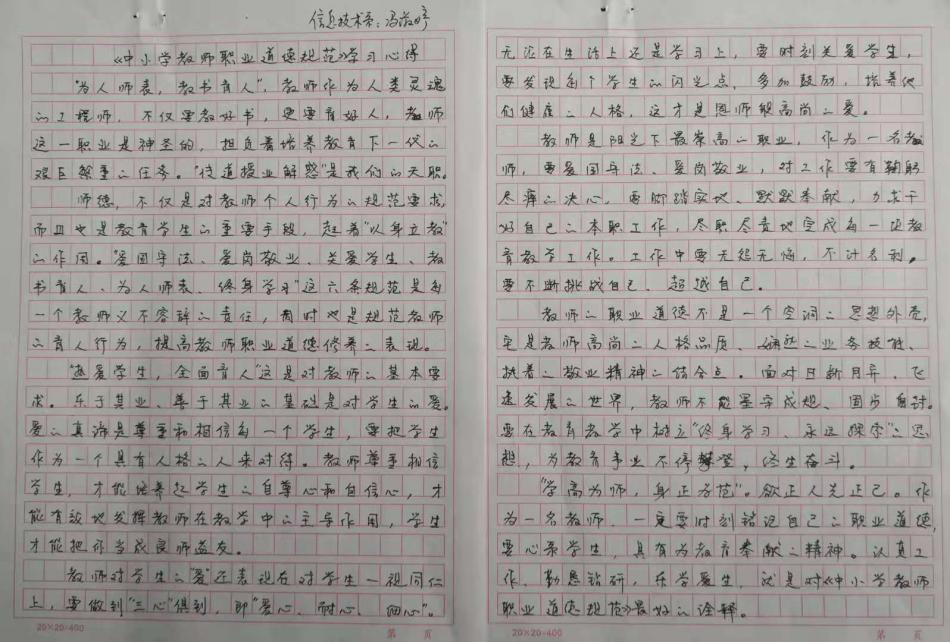 信息技术系：冯
《中小学教师职业道德规范》学习心得
“为人师表，教书育人”，教师作为人类灵魂
的工程师，不仅要教好书，更要育好人，教师
这一职业是神圣的，担负着培养教育下一代的
艰巨繁重的任务。“传道授业解惑”是我们的天职。
师德，不仅是对教师个人行为的规范要求，
而且也是教育学生的重要手段，起着“以身立教”
的作用。“爱国守法、爱岗敬业、关爱学生、教
书育人、为人师表、终身学习”这六条规范是每
一个教师义不容辞的责任，同时也是规范教师
的育人行为，提高教师职业道德修养的表现。
“热爱学生，全面育人”这是对教师的基本要
求。乐于其业、善于其业的基础是对学生的爱。
爱的真谛是尊重和相信每一个学生，要把学生
作为一个具有人格的人来对待。教师尊重相信
学生，才能培养起学生的自尊心和自信心，才
能有效地发挥教师在教学中的主导作用，学生
才能把你当成良师益友。
教师对学生的“爱”还表现在对学生一视同仁
上，要做到“三心”俱到，即“爱心、耐心、细心”。
20×20=400
第 页
无论在生活上还是学习上，要时刻关爱学生，
要发现每个学生的闪光点，多加鼓励，培养他
们健康的人格，这才是恩师般高尚的爱。
教师是阳光下最崇高的职业，作为一名教
师，要爱国守法、爱岗敬业，对工作要有鞠躬
尽瘁的决心，要脚踏实地、默默奉献，力求干
好自己的本职工作，尽职尽责地完成每一项教
育教学工作。工作中要无怨无悔，不计名利。
要不断挑战自己、超越自己。
教师的职业道德不是一个空洞的思想外壳，
它是教师高尚的人格品质、娴熟的业务技能、
执着的敬业精神的结合点。面对日新月异、飞
速发展的世界，教师不能墨守成规、固步自封。
要在教育教学中树立“终身学习、永远探索”的思
想，为教育事业不停攀登，终生奋斗。
“学高为师，身正为范”。欲正人先正己。作
为一名教师，一定要时刻铭记自己的职业道德，
要心系学生，具有为教育奉献的精神。认真工
作、勤恳钻研，乐学爱生，就是对《中小学教师
职业道德规范》最好的诠释。
20×20=400
第 页